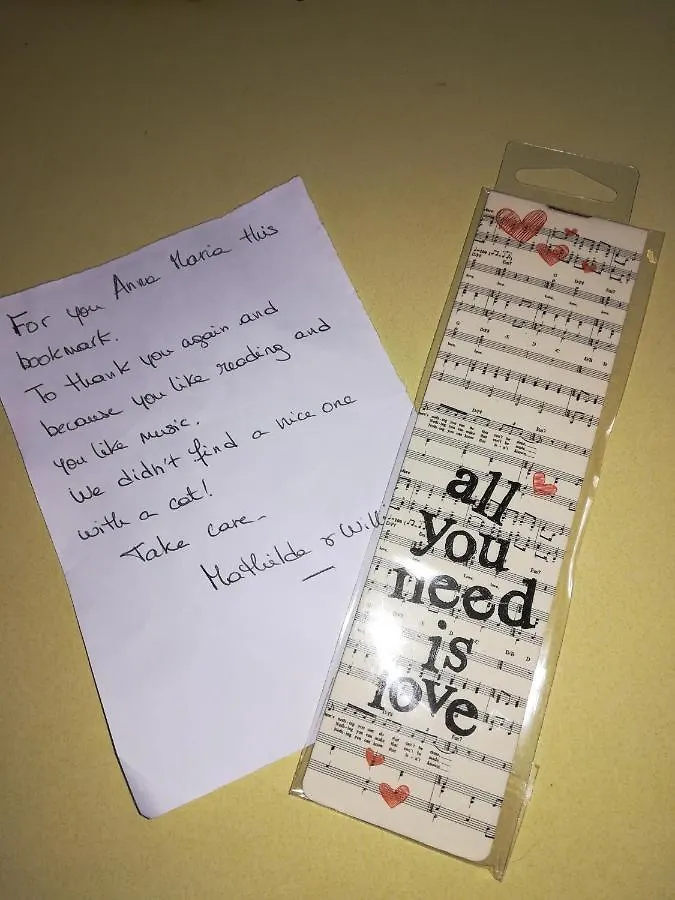 For you Anna Maria this
bookmark.
To thank you again and
because you like reading and
you like music.
We didn't find a nice one
with a cat!
Take care.
Mathilda & Will
all
you
need
is
love